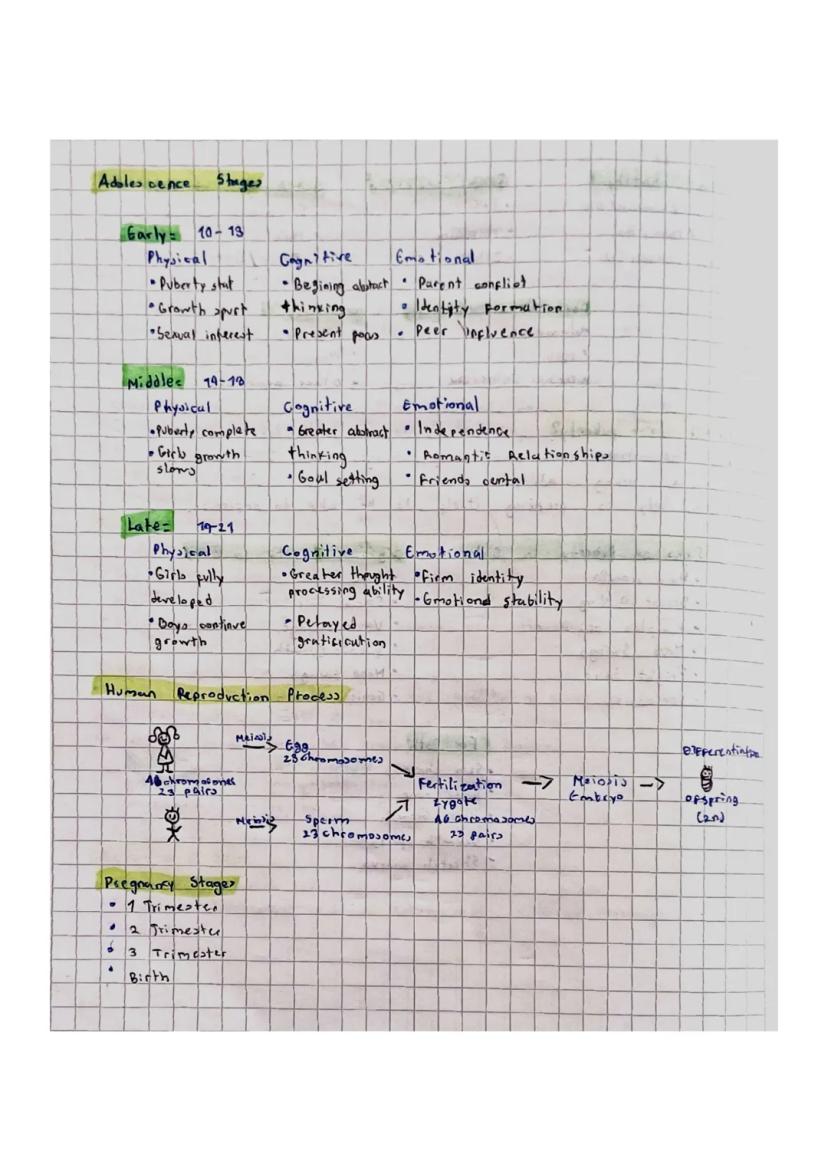 Adolescence Stages
Early= 10-13
Physical Cognitive Emotional
• Puberty stat • Begining abstract • Parent conflict
• Growth spurt thinking • Identity formation
• Sexual interest • Present focus • Peer influence
Middle= 14-18
Physical Cognitive Emotional
• Puberty complete • Greater abstract • Independence
• Girls growth thinking • Romantic Relationships
slows • Goal setting • Friends cental
Late= 19-21
Physical Cognitive Emotional
• Girls fully • Greater thought • Firm identity
developed processing ability • Emotional stability
• Boys continue • Delayed
growth gratification
Human Reproduction Process
Meiosis Egg Differentiation
23 chromosomes
46 chromosomes Fertilization Meiosis
23 pairs Zygote Embryo offspring
Meiosis Sperm 46 chromosomes (2n)
23 chromosomes 23 pairs
Pregnancy Stages
• 1 Trimester
• 2 Trimester
• 3 Trimester
• Birth